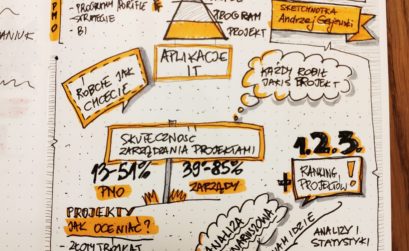 PMO
- PROGRAMY
- STRATEGIE
- BI
PROGRAM
PROJEKT
SKETCHNOTKA
Andrzej
APLIKACJE
IT
RÓBCIE JAK
CHCECIE
KAŻDY ROBIŁ
JAKIŚ PROJEKT
SKUTECZNOŚĆ
ZARZĄDZANIA PROJEKTAMI
13-51%
PMO
39-85%
ZARZĄDY
1.2.3.
+
RANKING
PROJEKTÓW!
PROJEKTY
JAK OCENIAĆ?
- ZŁOTY TRÓJKĄT
ANALIZA
ANALIZY I
STATYSTYKI